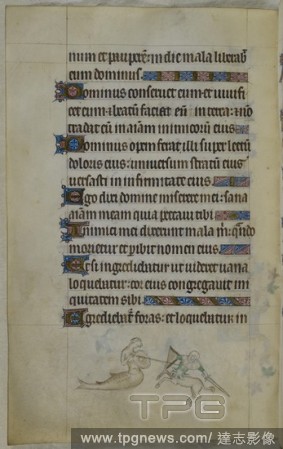 num et paupere: in die mala liberab
eum dominus.
Dominus conseruet eum et uiuifi
cet eum: beatum faciat eū in terra: et nō
tradat eū in aīam inimicorū eius
Dominus opem ferat illi super lectū
doloris eius: uniuersum stratū eius
uersasti in infirmitate eius
Ego dixi domine miserere mei: sana
aīam meam quia peccaui tibi
Inimici mei dixerunt mala m: qn̄do
morietur et peribit nomen eius.
Et si ingrediebatur ut uideret uana
loquebatur: cor eius congregauit in
iquitatem sibi.
Egrediebat foras: et loquebatur in
TPG
www.tpgnews.com/ 達志影像